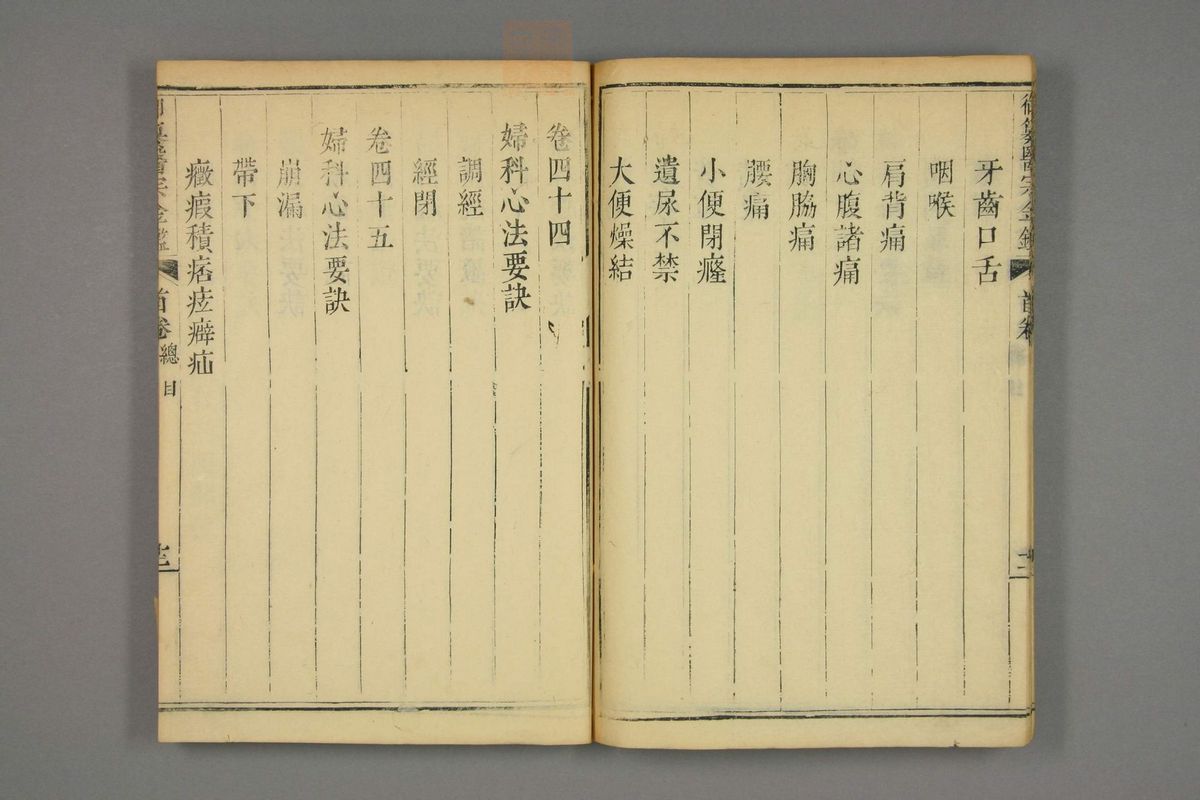 牙齒口舌
咽喉
肩背痛
心腹諸痛
胸脇痛
腰痛
小便閉癃
遺尿不禁
大便燥結
卷四十四
婦科心法要訣
調經
經閉
卷四十五
婦科心法要訣
崩漏
帶下
癥瘕積痞痃癖疝
御纂醫宗金鑑
首卷
總目